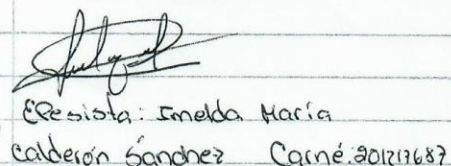 EPesista: Imelda María
Calderón Sánchez Carné 201217687